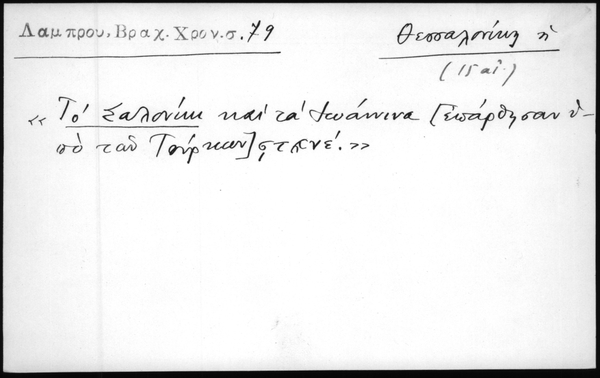 Λαμπρου, Βραχ. Χρον. σ. 79
Θεσσαλονίκη ἡ
(15 αἰ.)
« Τό Σαλονίκι καί τά Ἰωάννινα [ἐπάρθησαν ὑ-
πό τῶν Τούρκων]